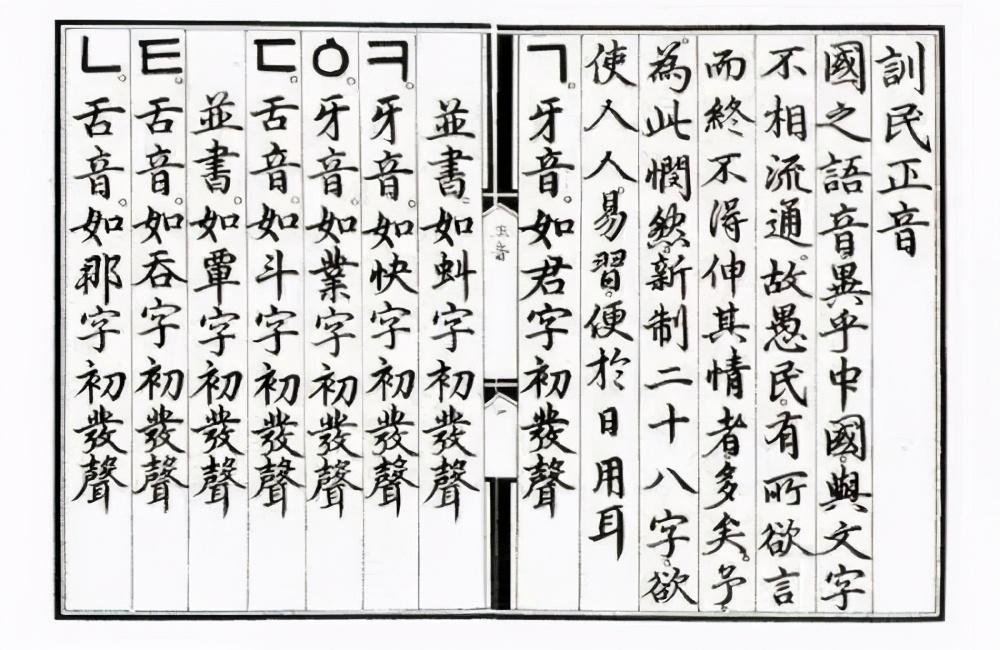 訓民正音
國之語音異乎中國與文字
不相流通故愚民有所欲言
而終不得伸其情者多矣予
為此憫然新制二十八字欲
使人人易習便於日用耳
ㄱ。牙音。如君字初發聲
並書如虯字初發聲
ㅋ。牙音。如快字初發聲
ㆁ。牙音。如業字初發聲
ㄷ。舌音。如斗字初發聲
並書。如覃字初發聲
ㅌ。舌音。如呑字初發聲
ㄴ。舌音。如那字初發聲
正音
一